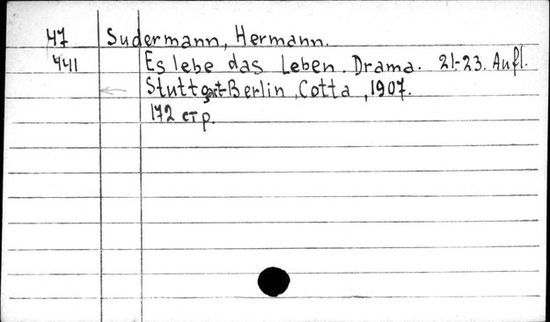 47 Sudermann, Hermann.
441 Es lebe das Leben. Drama. 21-23. Aufl.
Stuttgart-Berlin, Cotta, 1907.
172 стр.